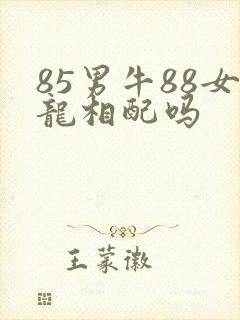 85男牛88女
龍相配吗
王蒙徽